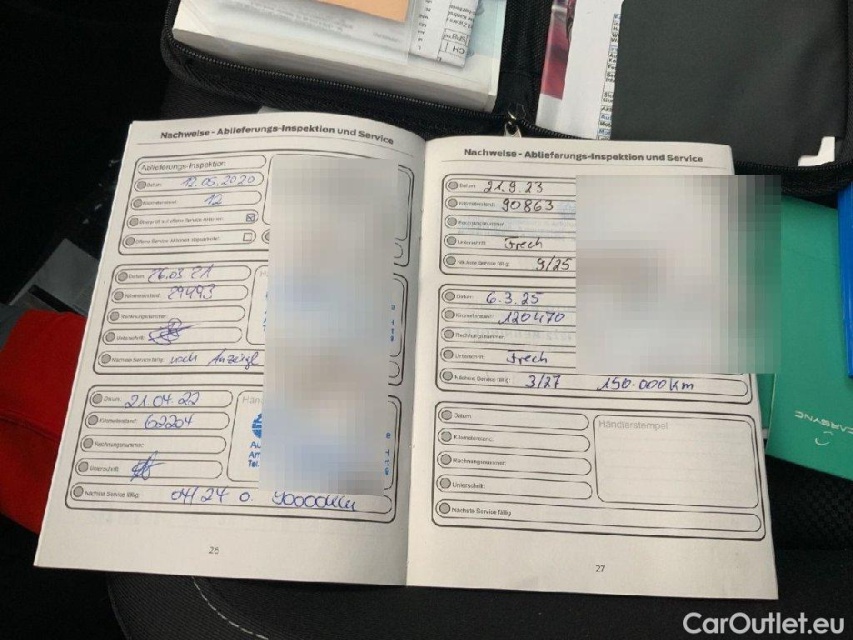 Nachweise - Ablieferungs-Inspektion und Service
Ablieferungs-Inspektion
Datum: 12.05.2020
Kilometerstand: 12
Datum: 26.03.21
Kilometerstand: 29493
Rechnungsnummer:
Unterschrift:
Nächste Service fällig: nach Anzeige
Datum: 21.04.22
Kilometerstand: 62204
Rechnungsnummer:
Unterschrift:
Nächste Service fällig: 04/24 o. 90000km
25
Nachweise - Ablieferungs-Inspektion und Service
Datum: 21.9.23
Kilometerstand: 90863
Rechnungsnummer:
Unterschrift: Frech
Nächste Service fällig: 9/25
Datum: 6.3.25
Kilometerstand: 120470
Rechnungsnummer:
Unterschrift: Frech
Nächste Service fällig: 3/27 150.000km
Datum:
Händlerstempel
Kilometerstand:
Rechnungsnummer:
Unterschrift:
Nächste Service fällig:
27
CARSYNC
CarOutlet.eu